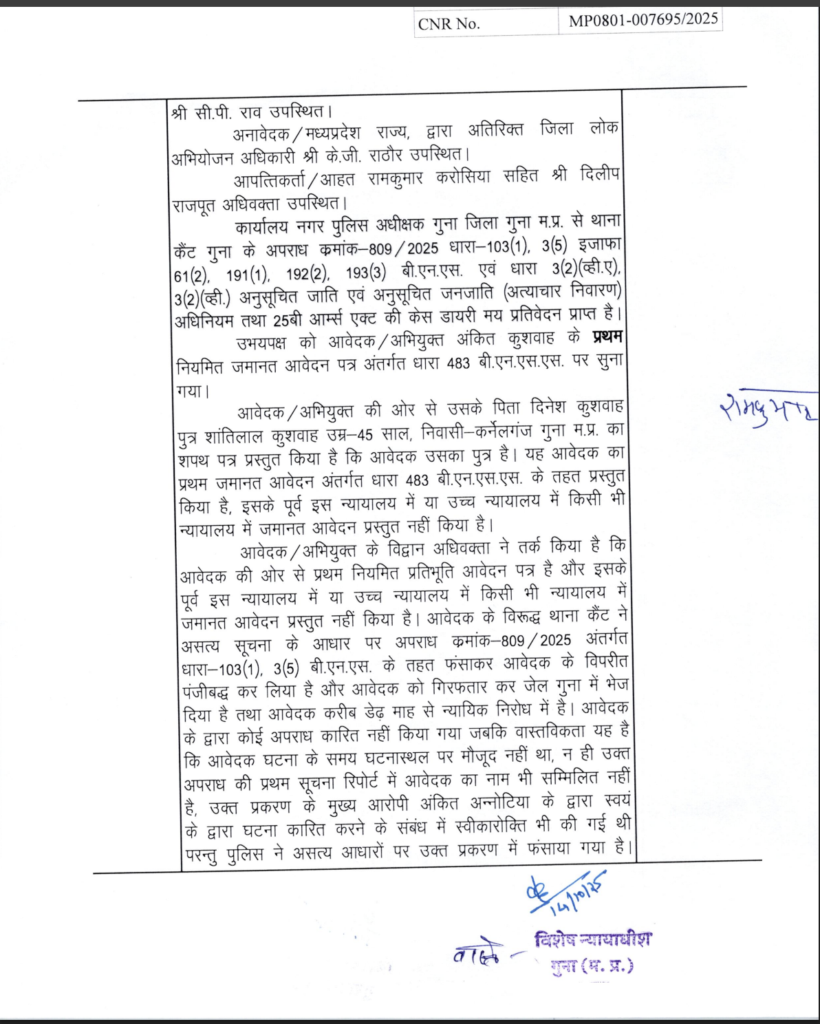 CNR No. MP0801-007695/2025
श्री सी.पी. राव उपस्थित।
अनावेदक/मध्यप्रदेश राज्य, द्वारा अतिरिक्त जिला लोक
अभियोजन अधिकारी श्री के.जी. राठौर उपस्थित।
आपत्तिकर्ता/आहत रामकुमार करोसिया सहित श्री दिलीप
राजपूत अधिवक्ता उपस्थित।
कार्यालय नगर पुलिस अधीक्षक गुना जिला गुना म.प्र. से थाना
कैंट गुना के अपराध क्रमांक–809/2025 धारा–103(1), 3(5) इजाफा
61(2), 191(1), 192(2), 193(3) बी.एन.एस. एवं धारा 3(2)(व्ही.ए),
3(2)(व्ही.) अनुसूचित जाति एवं अनुसूचित जनजाति (अत्याचार निवारण)
अधिनियम तथा 25बी आर्म्स एक्ट की केस डायरी मय प्रतिवेदन प्राप्त है।
उभयपक्ष को आवेदक/अभियुक्त अंकित कुशवाह के प्रथम
नियमित जमानत आवेदन पत्र अंतर्गत धारा 483 बी.एन.एस.एस. पर सुना
गया।
रामकुमार
आवेदक/अभियुक्त की ओर से उसके पिता दिनेश कुशवाह
पुत्र शांतिलाल कुशवाह उम्र–45 साल, निवासी–कर्नेलगंज गुना म.प्र. का
शपथ पत्र प्रस्तुत किया है कि आवेदक उसका पुत्र है। यह आवेदक का
प्रथम जमानत आवेदन अंतर्गत धारा 483 बी.एन.एस.एस. के तहत प्रस्तुत
किया है, इसके पूर्व इस न्यायालय में या उच्च न्यायालय में किसी भी
न्यायालय में जमानत आवेदन प्रस्तुत नहीं किया है।
आवेदक/अभियुक्त के विद्वान अधिवक्ता ने तर्क किया है कि
आवेदक की ओर से प्रथम नियमित प्रतिभूति आवेदन पत्र है और इसके
पूर्व इस न्यायालय में या उच्च न्यायालय में किसी भी न्यायालय में
जमानत आवेदन प्रस्तुत नहीं किया है। आवेदक के विरूद्ध थाना कैंट ने
असत्य सूचना के आधार पर अपराध क्रमांक–809/2025 अंतर्गत
धारा–103(1), 3(5) बी.एन.एस. के तहत फंसाकर आवेदक के विपरीत
पंजीबद्ध कर लिया है और आवेदक को गिरफतार कर जेल गुना में भेज
दिया है तथा आवेदक करीब डेढ़ माह से न्यायिक निरोध में है। आवेदक
के द्वारा कोई अपराध कारित नहीं किया गया जबकि वास्तविकता यह है
कि आवेदक घटना के समय घटनास्थल पर मौजूद नहीं था, न ही उक्त
अपराध की प्रथम सूचना रिपोर्ट में आवेदक का नाम भी सम्मिलित नहीं
है, उक्त प्रकरण के मुख्य आरोपी अंकित अन्नोटिया के द्वारा स्वयं
के द्वारा घटना कारित करने के संबंध में स्वीकारोक्ति भी की गई थी
परन्तु पुलिस ने असत्य आधारों पर उक्त प्रकरण में फंसाया गया है।
14/10/25
विशेष न्यायाधीश
गुना (म. प्र.)